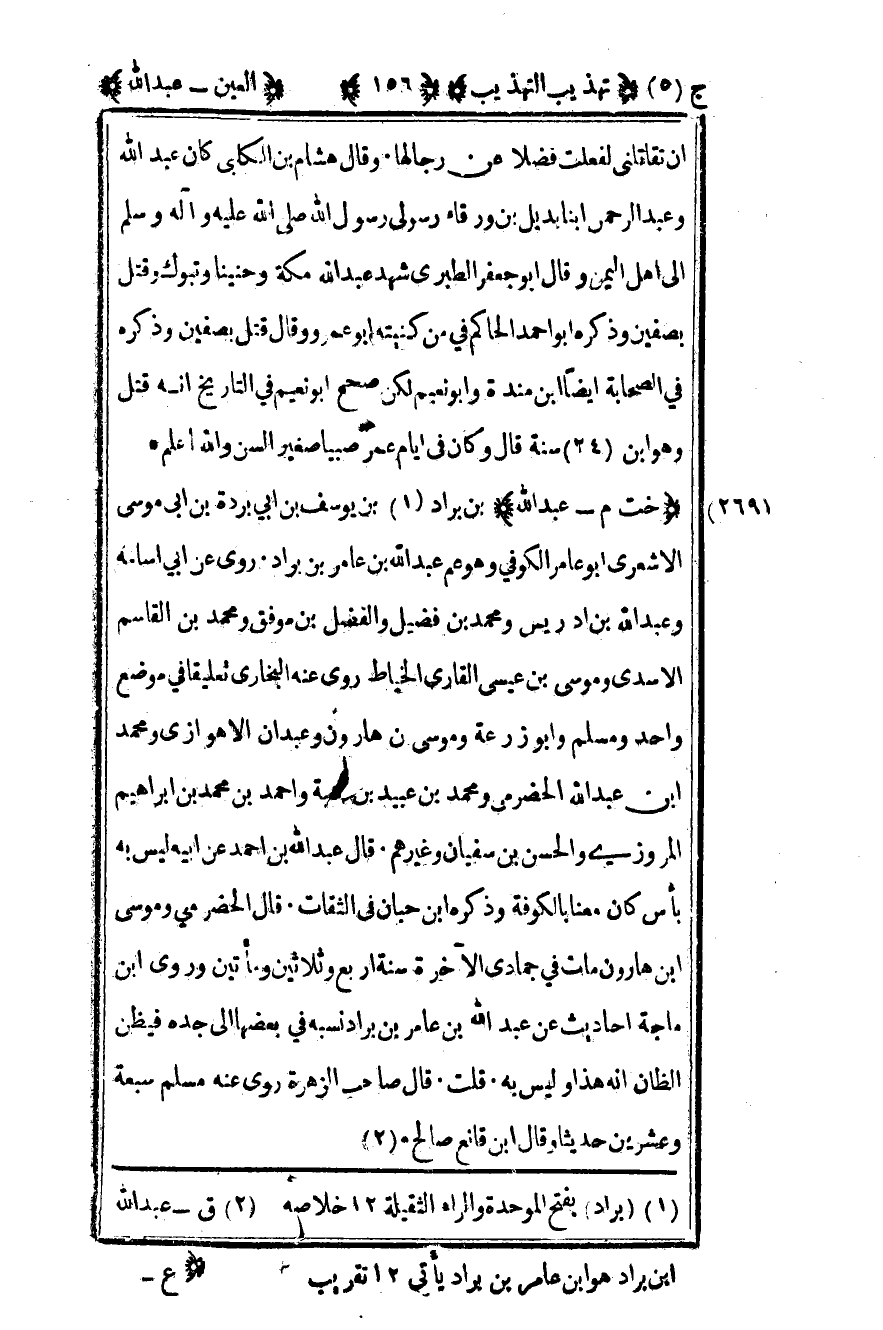 ج (٥) ﴿ تهذيب التهذيب ﴾ ﴿ ١٥٦ ﴾ ﴿ العين ـ عبدالله ﴾
ان تقاتلنى لفعلت فضلا عن رجالها • وقال هشام بن الكلبى كان عبد الله
وعبدالرحمن ابنا بديل بن ورقاء رسولى رسول الله صلى الله عليه و آله و سلم
الى اهل اليمن و قال ابو جعفر الطبرى شهد عبدالله مكة وحنينا وتبوك وقتل
بصفين وذكره ابو احمد الحاكم في من كنيته ابو عمرو وقال قتل بصفين وذكره
في الصحابة ايضاً ابن مندة وابونعيم لكن صحح ابونعيم في التاريخ انه قتل
وهو ابن (٢٤) سنة قال وكان فى ايام عمر صبيا صغير السن والله اعلم •
(٢٦٩١ ﴿ خت م ـ عبدالله ﴾ بن براد (١) بن يوسف بن ابي بردة بن ابى موسى
الاشعرى ابو عامر الكوفي وهو عم عبدالله بن عامر بن براد • روى عن ابي اسامة
وعبدالله بن ادريس ومحمد بن فضيل والفضل بن موفق ومحمد بن القاسم
الاسدى وموسى بن عيسى القارى الخياط روى عنه البخارى تعليقا في موضع
واحد ومسلم وابو زرعة وموسى ن هارون وعبدان الاهوازى ومحمد
ابن عبدالله الحضرمى ومحمد بن عبيد بن واحمد بن محمد بن ابراهيم
المروزي والحسن بن سفيان وغيرهم • قال عبدالله بن احمد عن ابيه ليس به
بأس كان معنا بالكوفة وذكره ابن حبان فى الثقات • قال الحضرمي وموسى
ابن هارون مات في جمادى الآخرة سنة اربع وثلاثين ومأتين وروى ابن
ماجة احاديث عن عبد الله بن عامر بن براد نسبه في بعضها الى جده فيظن
الظان انه هذا وليس به • قلت • قال صاحب الزهرة روى عنه مسلم سبعة
وعشرين حديثا وقال ابن قانع صالح • (٢)
(١) (براد) بفتح الموحدة والراء الثقيلة ١٢ خلاصه (٢) ق ـ عبدالله
ابن براد هو ابن عامر بن براد يأتي ١٢ تقريب ﴿ ع ـ